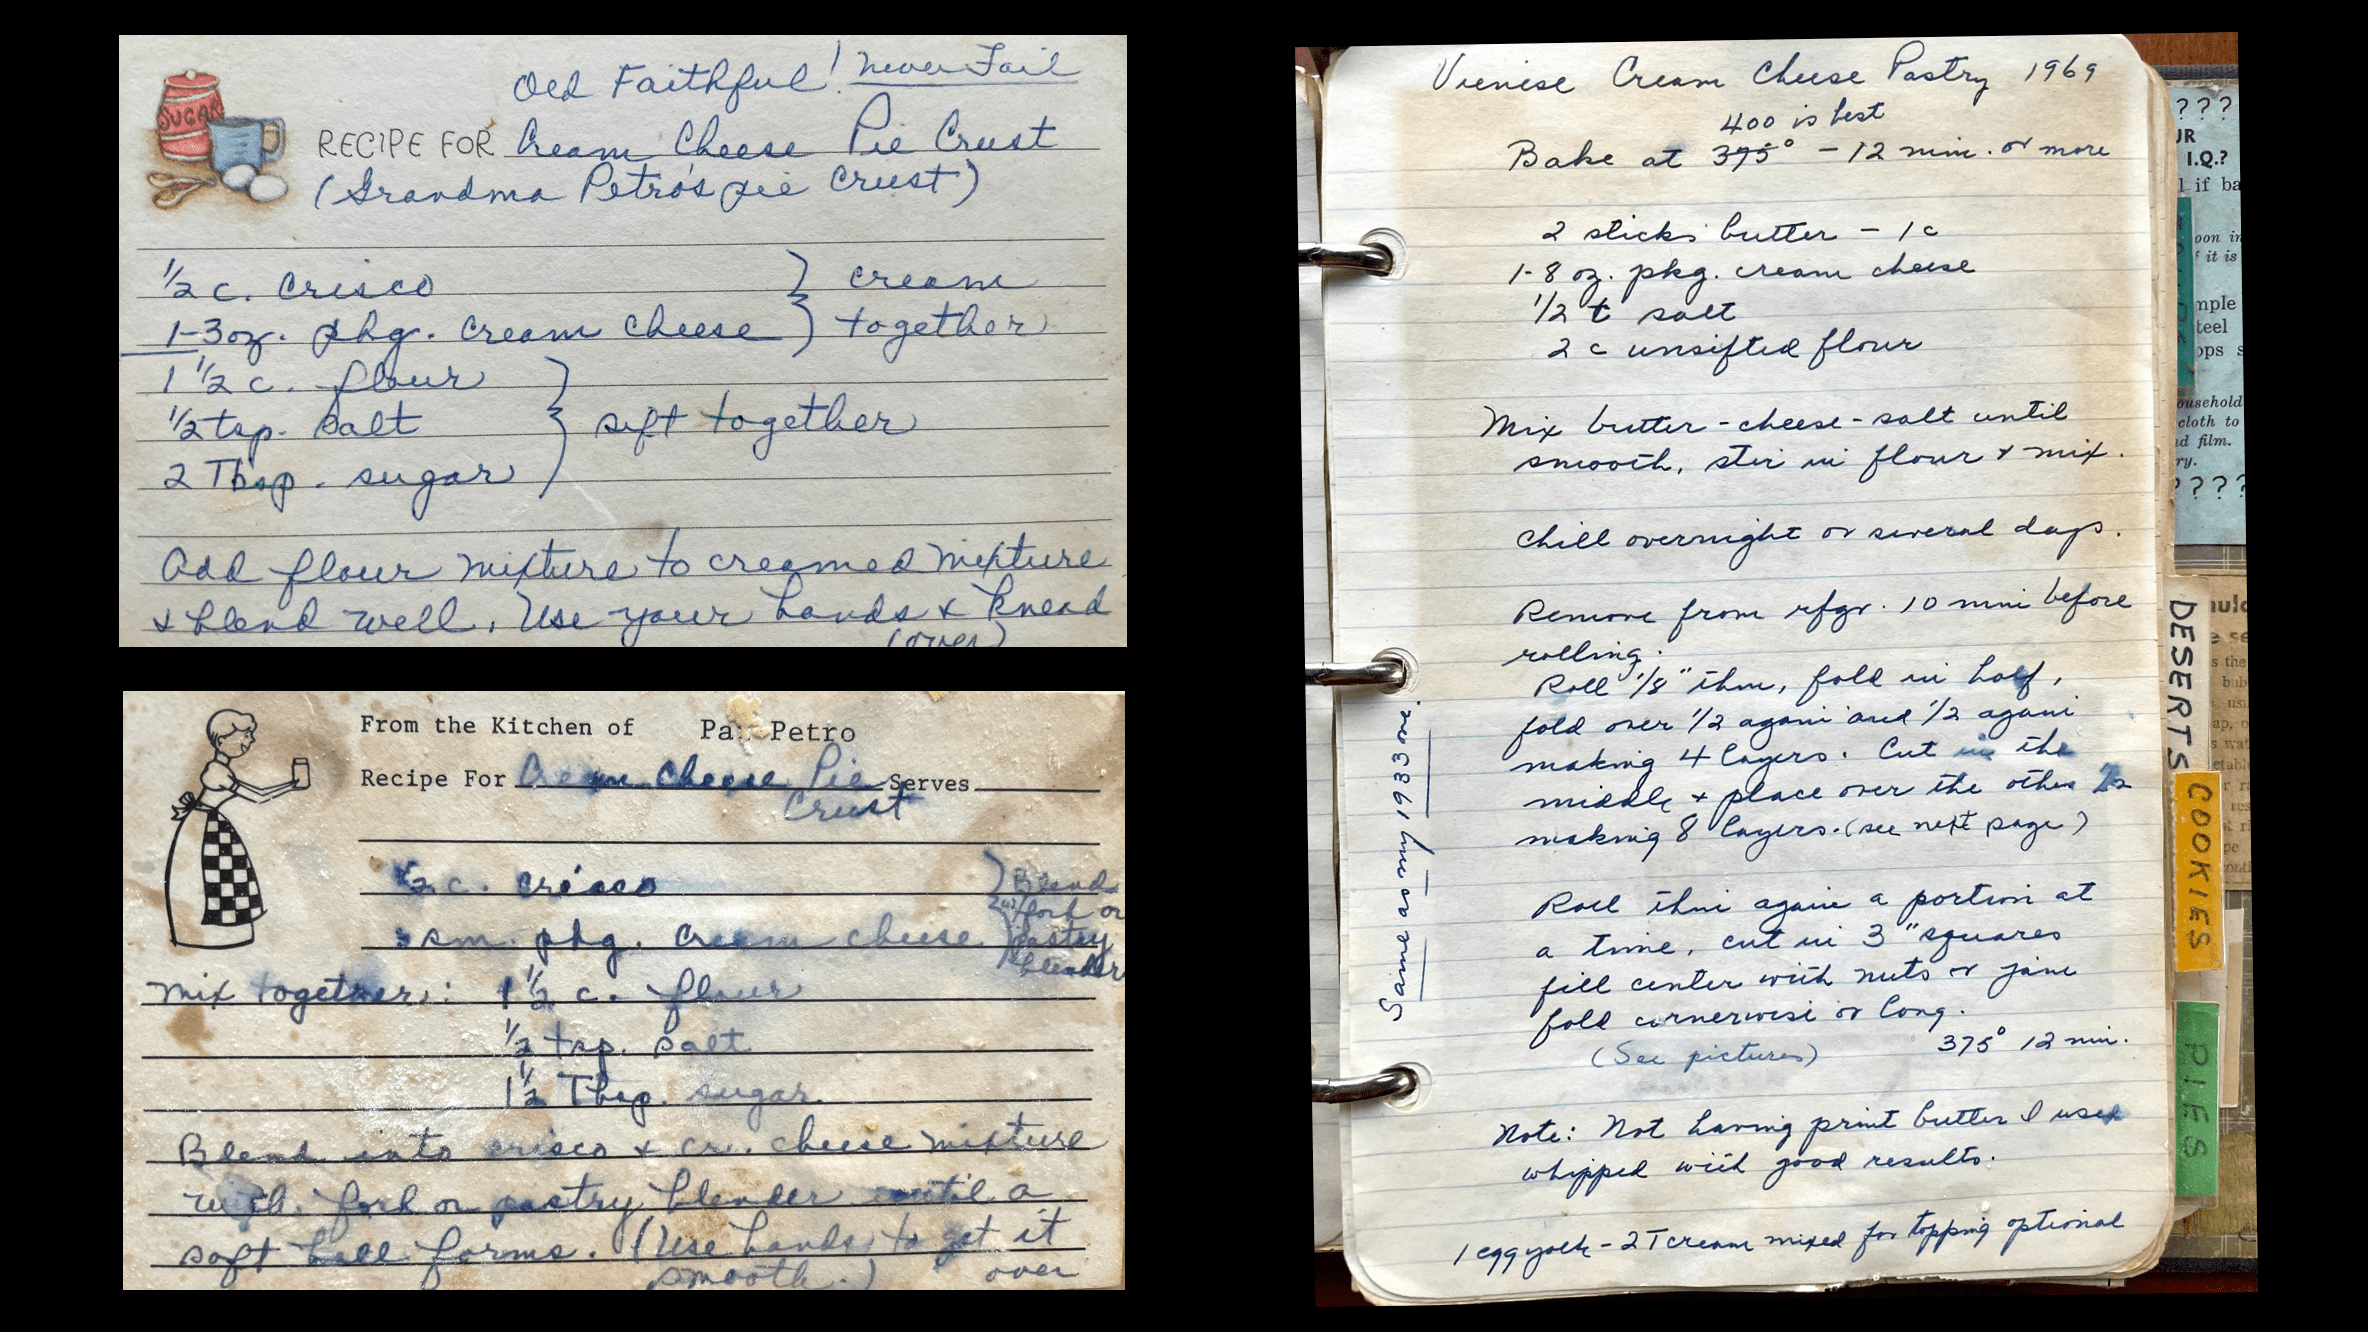 Old Faithful! Never Fail
SUGAR
RECIPE FOR Cream Cheese Pie Crust
(Grandma Petro's pie crust)
1/2 c. Crisco } cream
1-3oz. pkg. cream cheese } together
1 1/2 c. flour
1/2 tsp. salt } sift together
2 Tbsp. sugar
Add flour mixture to creamed mixture
& blend well. Use your hands & knead
(over)
From the Kitchen of Pat Petro
Recipe For Cream Cheese Pie Serves
Crust
1/2 c. crisco } Blend
w/ fork or
sm. pkg. cream cheese } pastry
blender
Mix together: 1 1/2 c. flour
1/2 tsp. salt
1 1/2 Tbsp. sugar
Blend into crisco & cr. cheese mixture
with fork or pastry blender until a
soft ball forms. (Use hands to get it
smooth.) over
Vienise Cream Cheese Pastry 1969
400 is best
Bake at 375° - 12 min. or more
2 sticks butter - 1 c
1-8 oz. pkg. cream cheese
1/2 t salt
2 c unsifted flour
Mix butter-cheese-salt until
smooth, stir in flour & mix.
Chill overnight or several days.
Remove from rfgr. 10 min before
rolling.
Roll 1/8" thin, fold in half,
fold over 1/2 again and 1/2 again
making 4 layers. Cut in the
middle & place over the other 1/2
making 8 layers. (see next page)
Roll thin again a portion at
a time, cut in 3" squares
fill center with nuts or jam
fold cornerwise or long.
(See pictures) 375° 12 min.
Note: Not having print butter I used
whipped with good results.
1 egg yolk - 2 T cream mixed for topping optional
Same as my 1933 one.
DESERTS
COOKIES
PIES
? ? ?
UR
I.Q.?
if ba
oon in
if it is
mple
teel
ops s
ousehold
cloth to
nd film.
ry.
? ? ? ?